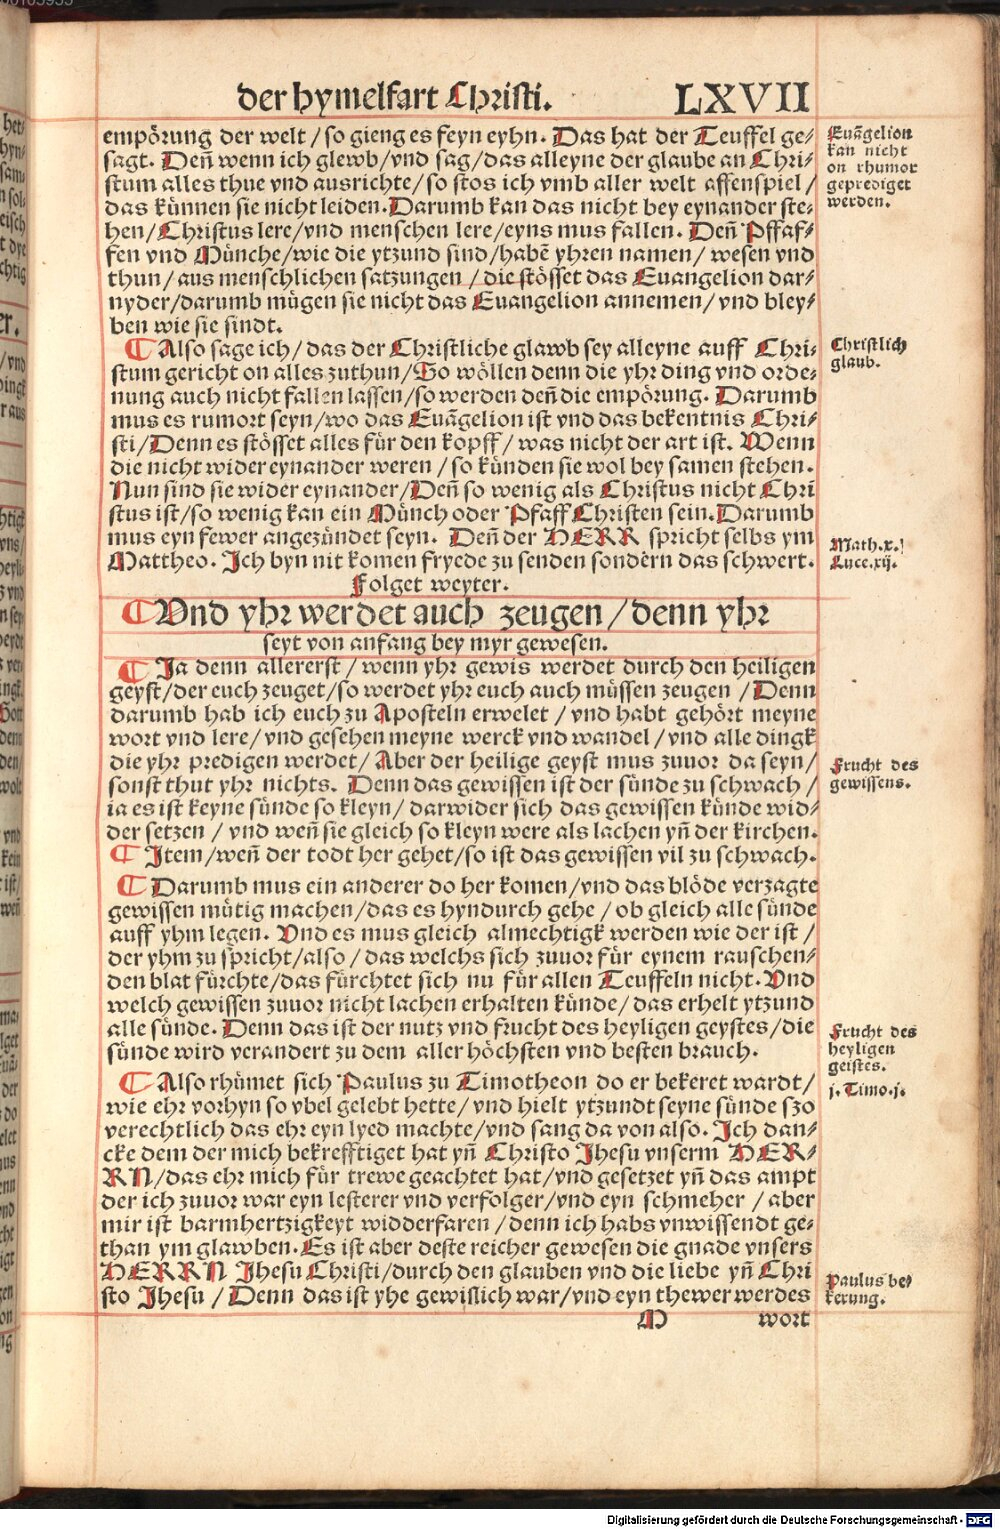 der hymelfart Christi. LXVII
empörung der welt / so gieng es feyn eyhn. Das hat der Teuffel ge⸗
sagt. Deñ wenn ich glewb/vnd sag/das alleyne der glaube an Chri⸗
stum alles thue vnd ausrichte/so stos ich vmb aller welt affenspiel /
das künnen sie nicht leiden. Darumb kan das nicht bey eynander ste⸗
hen/Christus lere/vnd menschen lere/eyns mus fallen. Deñ Pffaf⸗
fen vnd Münche/wie die ytzund sind/habē yhren namen/ wesen vnd
thun/aus menschlichen satzungen / die stösset das Euangelion dar⸗
nyder/darumb mügen sie nicht das Euangelion annemen/ vnd bley⸗
ben wie sie sindt.
¶ Also sage ich/das der Christliche glawb sey alleyne auff Chri⸗
stum gericht on alles zuthun/So wöllen denn die yhr ding vnd orde⸗
nung auch nicht fallen lassen/so werden deñ die empörung. Darumb
mus es rumort seyn/wo das Euāgelion ist vnd das bekentnis Chri⸗
sti/Denn es stösset alles für den kopff/ was nicht der art ist. Wenn
die nicht wider eynander weren / so künden sie wol bey samen stehen.
Nun sind sie wider eynander/Deñ so wenig als Christus nicht Chri
stus ist/so wenig kan ein Münch oder Pfaff Christen sein. Darumb
mus eyn fewer angezündet seyn. Deñ der HERR spricht selbs ym
Mattheo. Ich byn nit komen fryede zu senden sondern das schwert.
Folget weyter.
¶ Vnd yhr werdet auch zeugen / denn yhr
seyt von anfang bey myr gewesen.
¶ Ja denn allererst / wenn yhr gewis werdet durch den heiligen
geyst/der euch zeuget/so werdet yhr euch auch müssen zeugen / Denn
darumb hab ich euch zu Aposteln erwelet / vnd habt gehört meyne
wort vnd lere/vnd gesehen meyne werck vnd wandel/vnd alle dingk
die yhr predigen werdet/ Aber der heilige geyst mus zuuor da seyn/
sonst thut yhr nichts. Denn das gewissen ist der sünde zu schwach /
ia es ist keyne sünde so kleyn/ darwider sich das gewissen künde wid⸗
der setzen / vnd weñ sie gleich so kleyn were als lachen yñ der kirchen.
¶ Item/weñ der todt her gehet/so ist das gewissen vil zu schwach.
¶ Darumb mus ein anderer do her komen/vnd das blöde verzagte
gewissen mütig machen/das es hyndurch gehe / ob gleich alle sünde
auff yhm legen. Vnd es mus gleich almechtigk werden wie der ist /
der yhm zu spricht/also / das welchs sich zuuor für eynem rauschen⸗
den blat fürchte/das fürchtet sich nu für allen Teuffeln nicht. Vnd
welch gewissen zuuor nicht lachen erhalten künde/das erhelt ytzund
alle sünde. Denn das ist der nutz vnd frucht des heyligen geystes/die
sünde wird verandert zu dem aller höchsten vnd besten brauch.
¶ Also rhümet sich Paulus zu Timotheon do er bekeret wardt/
wie ehr vorhyn so vbel gelebt hette/vnd hielt ytzundt seyne sünde szo
verechtlich das ehr eyn lyed machte/vnd sang da von also. Ich dan⸗
cke dem der mich bekrefftiget hat yñ Christo Jhesu vnserm HER⸗
RN/das ehr mich für trewe geachtet hat/vnd gesetzet yñ das ampt
der ich zuuor war eyn lesterer vnd verfolger/vnd eyn schmeher / aber
mir ist barmhertzigkeyt widderfaren/denn ich habs vnwissendt ge⸗
than ym glawben. Es ist aber deste reicher gewesen die gnade vnsers
HERRN Jhesu Christi/durch den glauben vnd die liebe yñ Chri
sto Jhesu / Denn das ist yhe gewislich war/vnd eyn thewer werdes
M wort
Euāgelion
kan nicht
on rhumor
geprediget
werden.
Christlich
glaub.
Math.x.
Luce.xij.
Frucht des
gewissens.
Frucht des
heyligen
geistes.
j. Timo.j.
Paulus be⸗
kerung.
Digitalisierung gefördert durch die Deutsche Forschungsgemeinschaft - DFG